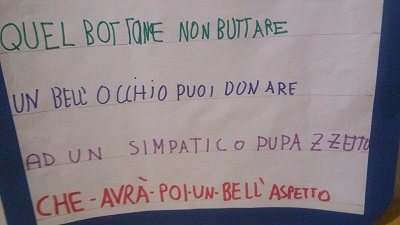 QUEL BOTTONE NON BUTTARE
UN BELL'OCCHIO PUOI DONARE
AD UN SIMPATICO PUPAZZETTO
CHE-AVRÀ-POI-UN-BELL'ASPETTO